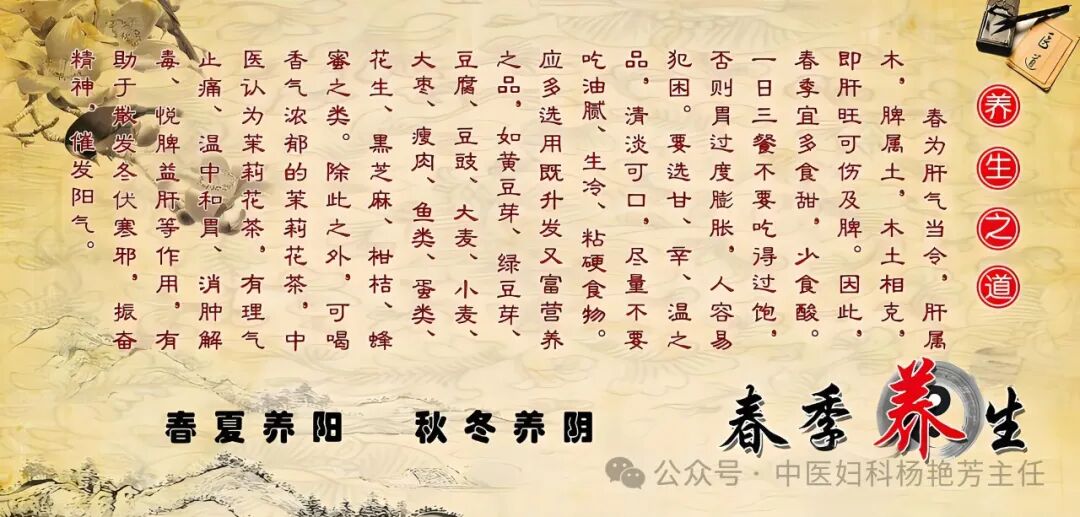 养生之道
春为肝气当令，肝属
木，脾属土，木土相克，
即肝旺可伤及脾。因此，
春季宜多食甜，少食酸。
一日三餐不要吃得过饱，
否则胃过度膨胀，人容易
犯困。要选甘、辛、温之
品，清淡可口，尽量不要
吃油腻、生冷、粘硬食物。
应多选用既升发又富营养
之品，如黄豆芽、绿豆芽、
豆腐、豆豉、大麦、小麦、
大枣、瘦肉、鱼类、蛋类、
花生、黑芝麻、柑桔、蜂
蜜之类。除此之外，可喝
香气浓郁的茉莉花茶，中
医认为茉莉花茶，有理气
止痛、温中和胃、消肿解
毒、悦脾益肝等作用，有
助于散发冬伏寒邪，振奋
精神，催发阳气。
春夏养阳 秋冬养阴
春季养生
公众号·中医妇科杨艳芳主任